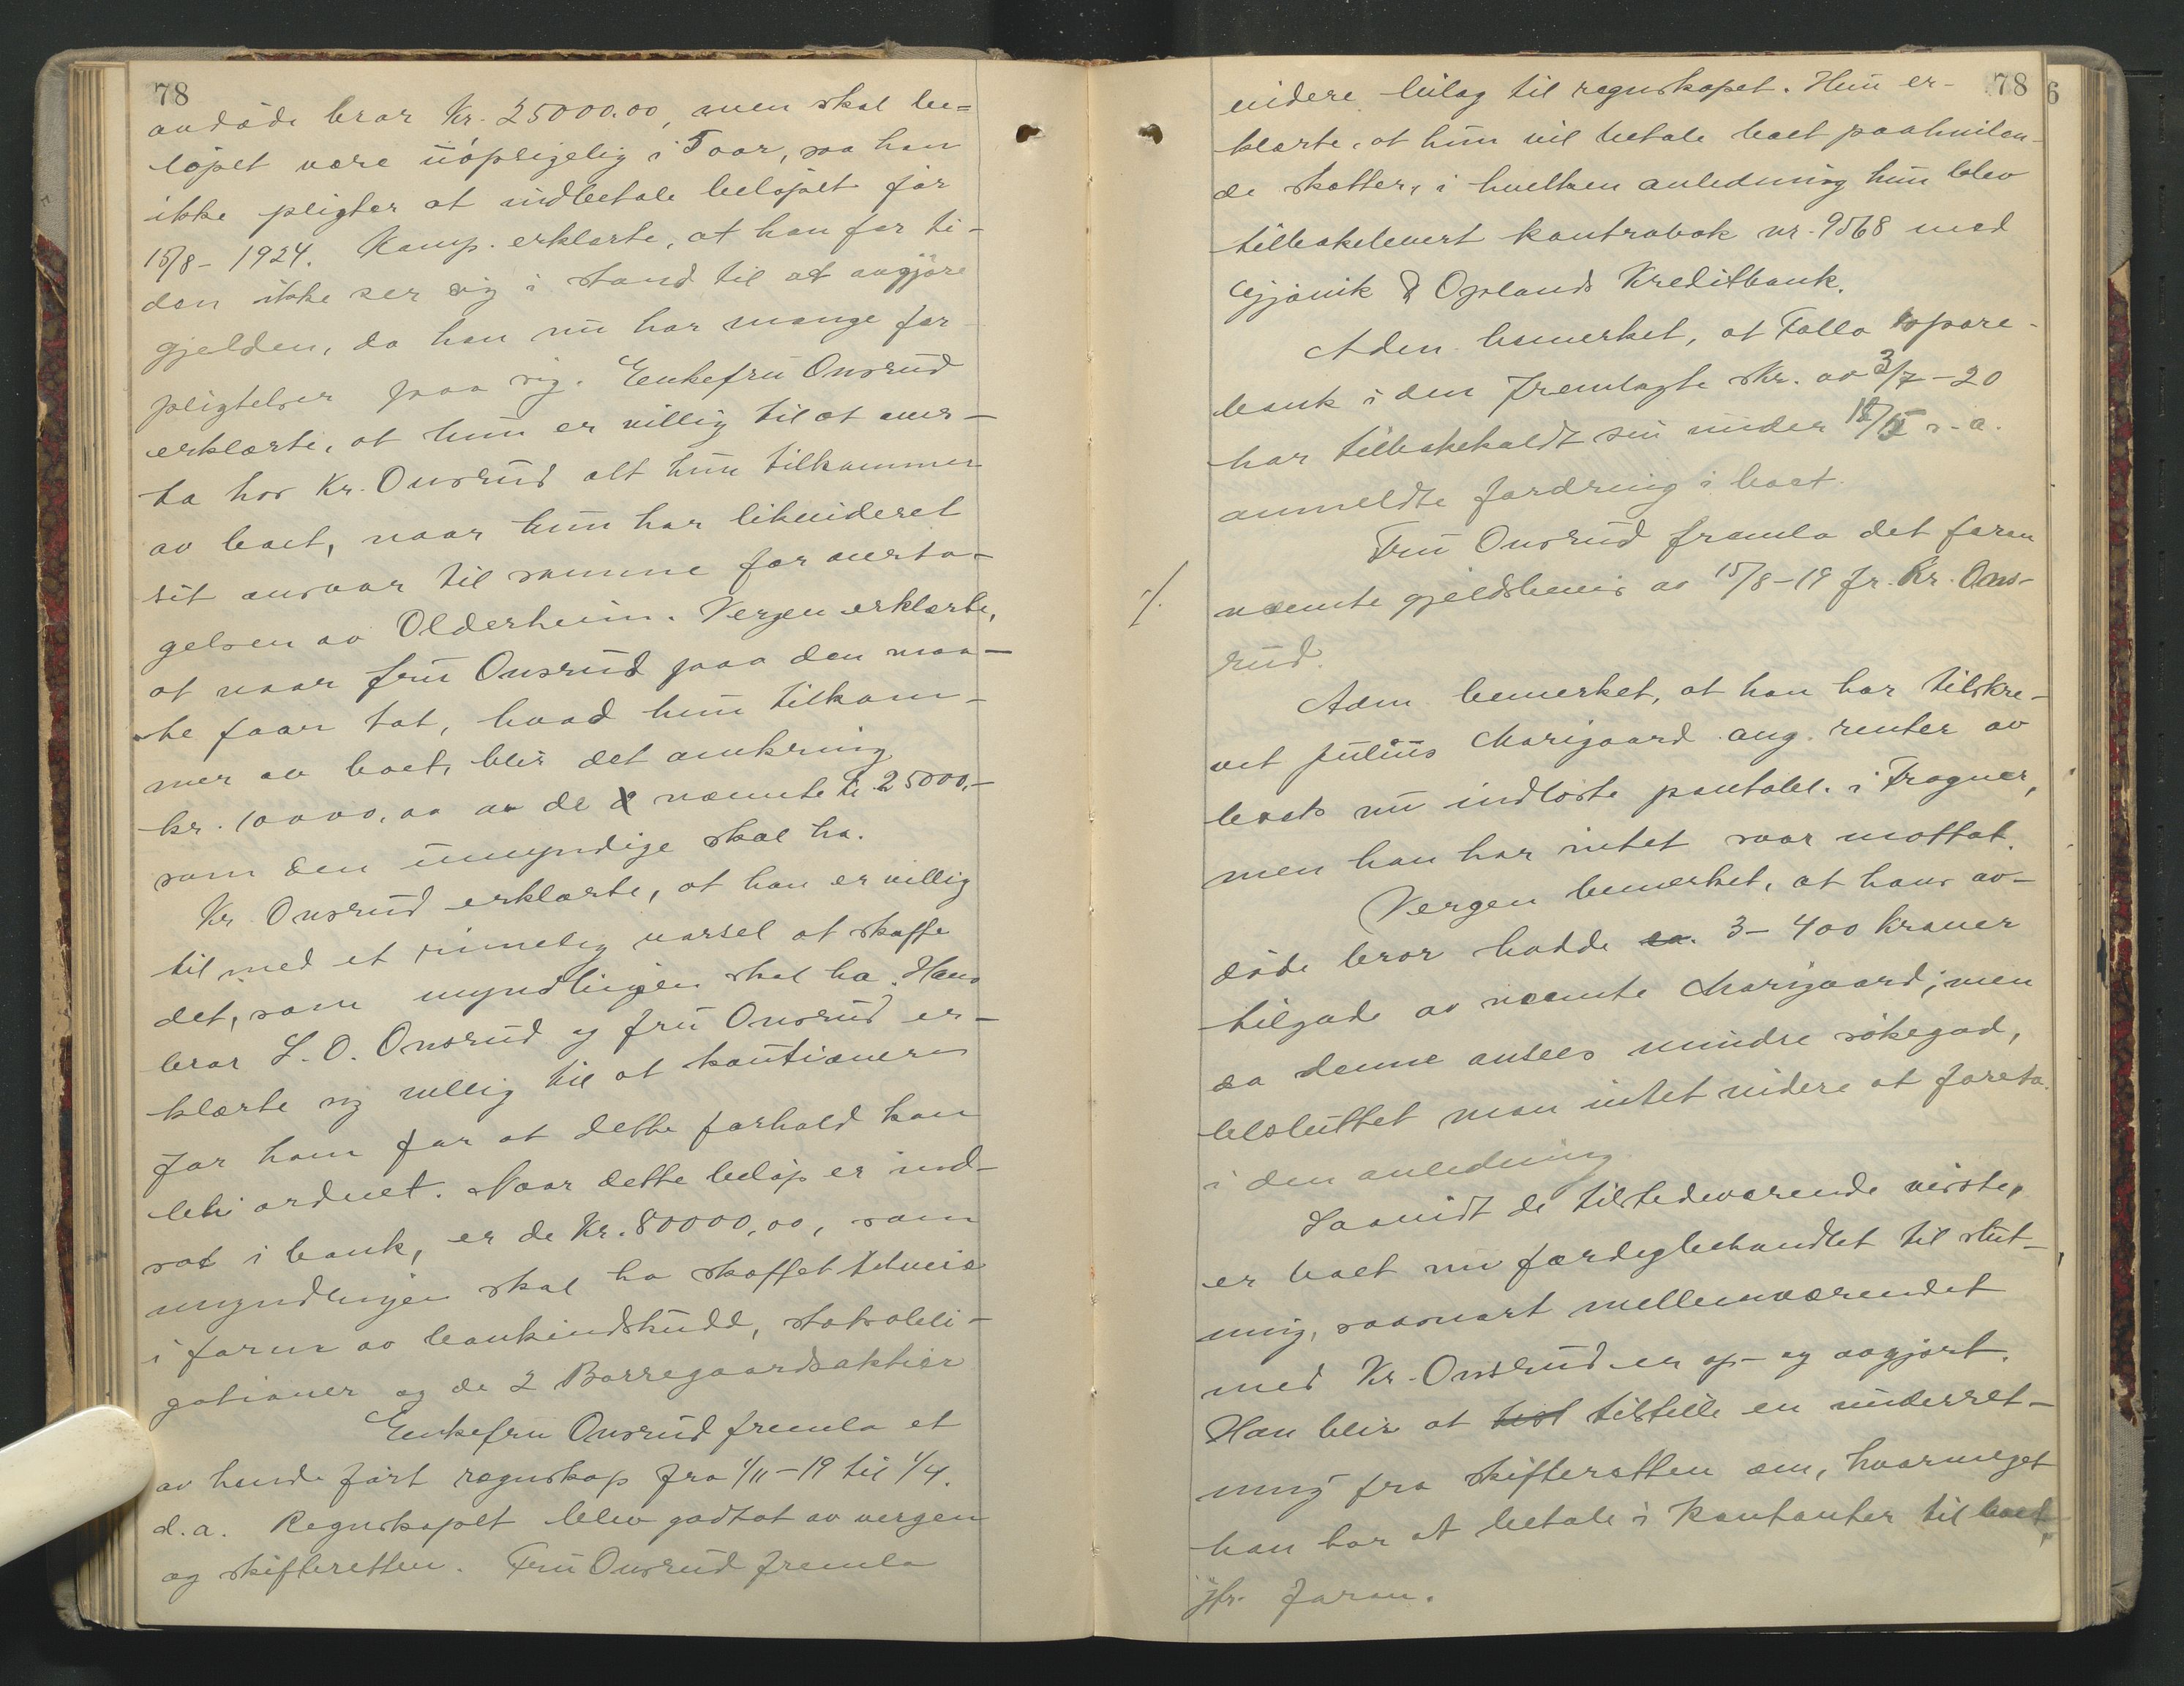 78
avdøde bror Kr. 25000.00, men skal be=
løpet være uopsigelig i 5 aar, saa han
ikke pligter at indbetale beløpet før
15/8 - 1924. Komp. erklærte, at han for ti-
den ikke ser sig i stand til at avgjøre
gjelden, da han nu har mange for
pligtelser paa sig. Enkefru Onsrud
erklærte, at hun er villig til at over-
ta hos Kr. Onsrud alt hun tilkommer
av boet, naar hun har likvideret
sit ansvar til samme for overta-
gelsen av Olderheim. Vergen erklærte,
at naar fru Onsrud paa den maa-
te faar tat, hvad hun tilkom-
mer av boet, blir det omkring
kr. 10000,00 av de nævnte kr. 25000,-
som den umyndige skal ha.
Kr. Onsrud erklærte, at han er villig
til med et rimelig varsel at skaffe
det, som myndlingen skal ha. Hans
bror L. O. Onsrud og fru Onsrud er-
klærte sig villig til at kautionere
for ham for at dette forhold kan
bli ordnet. Naar dette beløp er ind-
sat i bank, er de Kr. 80000,00, som
myndlingen skal ha skaffet tilveie
i form av bankindskudd, statsobli-
gationer og de 2 Borregaardsaktier
Enkefru Onsrud fremla et
av hende ført regnskap fra 1/11-19 til 1/4.
d.a. Regnskapet blev godtat av vergen
og skifteretten. Fru Onsrud fremla
78
6
videre bilag til regnskapet. Hun er-
klærte, at hun vil betale boet paahvilen-
de skatter, i hvilken anledning hun blev
tilbakelevert kontrabok nr. 9568 med
Gjøvik & Oplands Kreditbank.
Adm. bemerket, at Follo spare-
bank i den fremlagte skr. av 3/7-20
har tilbakekaldt sin under s.a.
anmeldte fordring i boet.
Fru Onsrud fremla det foran
./. nævnte gjeldsbevis av 15/8-19 fr. Kr. Ons-
rud.
Adm bemerket, at han har tilskre-
vet Julius Marigaard ang. renter av
boets nu indløste pantobl. i Frogner,
men han har intet svar mottat.
Vergen bemerket, at hans av-
døde bror hadde ca. 3-400 kroner
tilgode av nævnte Marigaard; men
da denne ansees mindre søkegod,
besluttet man intet videre at foreta
i den anledning.
Saavidt de tilstedeværende visste,
er boet nu færdigbehandlet til slut-
ning, saasnart mellemværendet
med Kr. Onsrud er op- og avgjort.
Han blir at tilstille en underret-
ning fra skifteretten om, hvormeget
han har at betale i kontanter til boet,
jfr. foran.